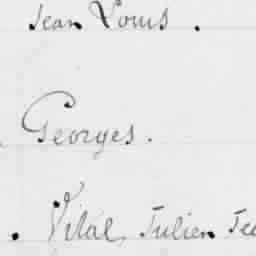 Jean Louis.
Georges.
Vital, Julien